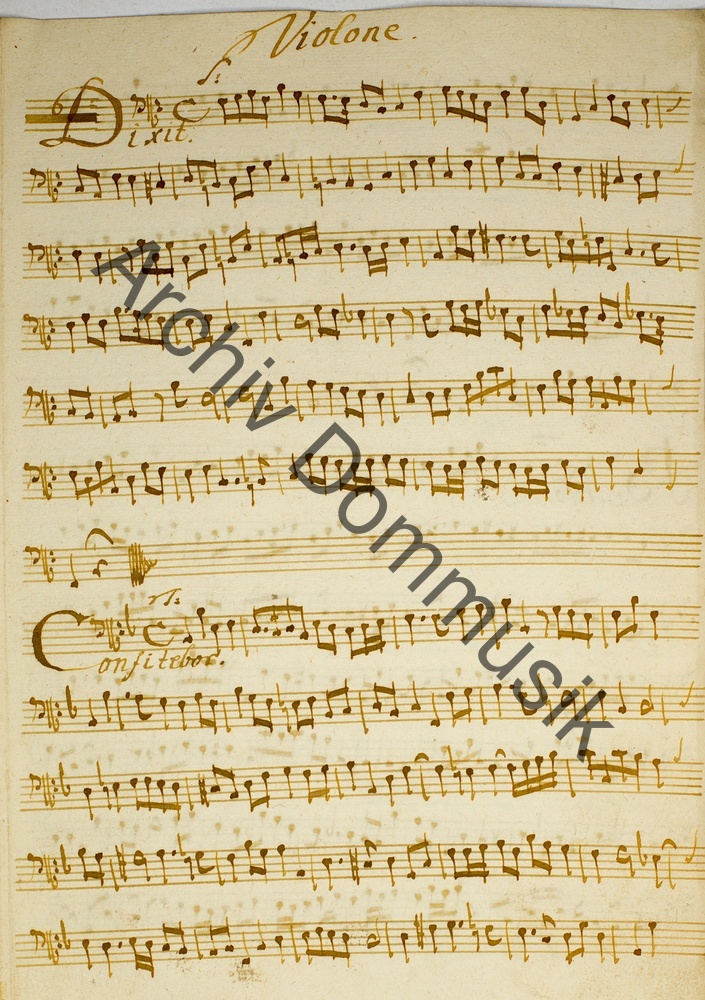 Violone.
f:
Dixit.
T:
Confitebor.
Archiv Dommusik